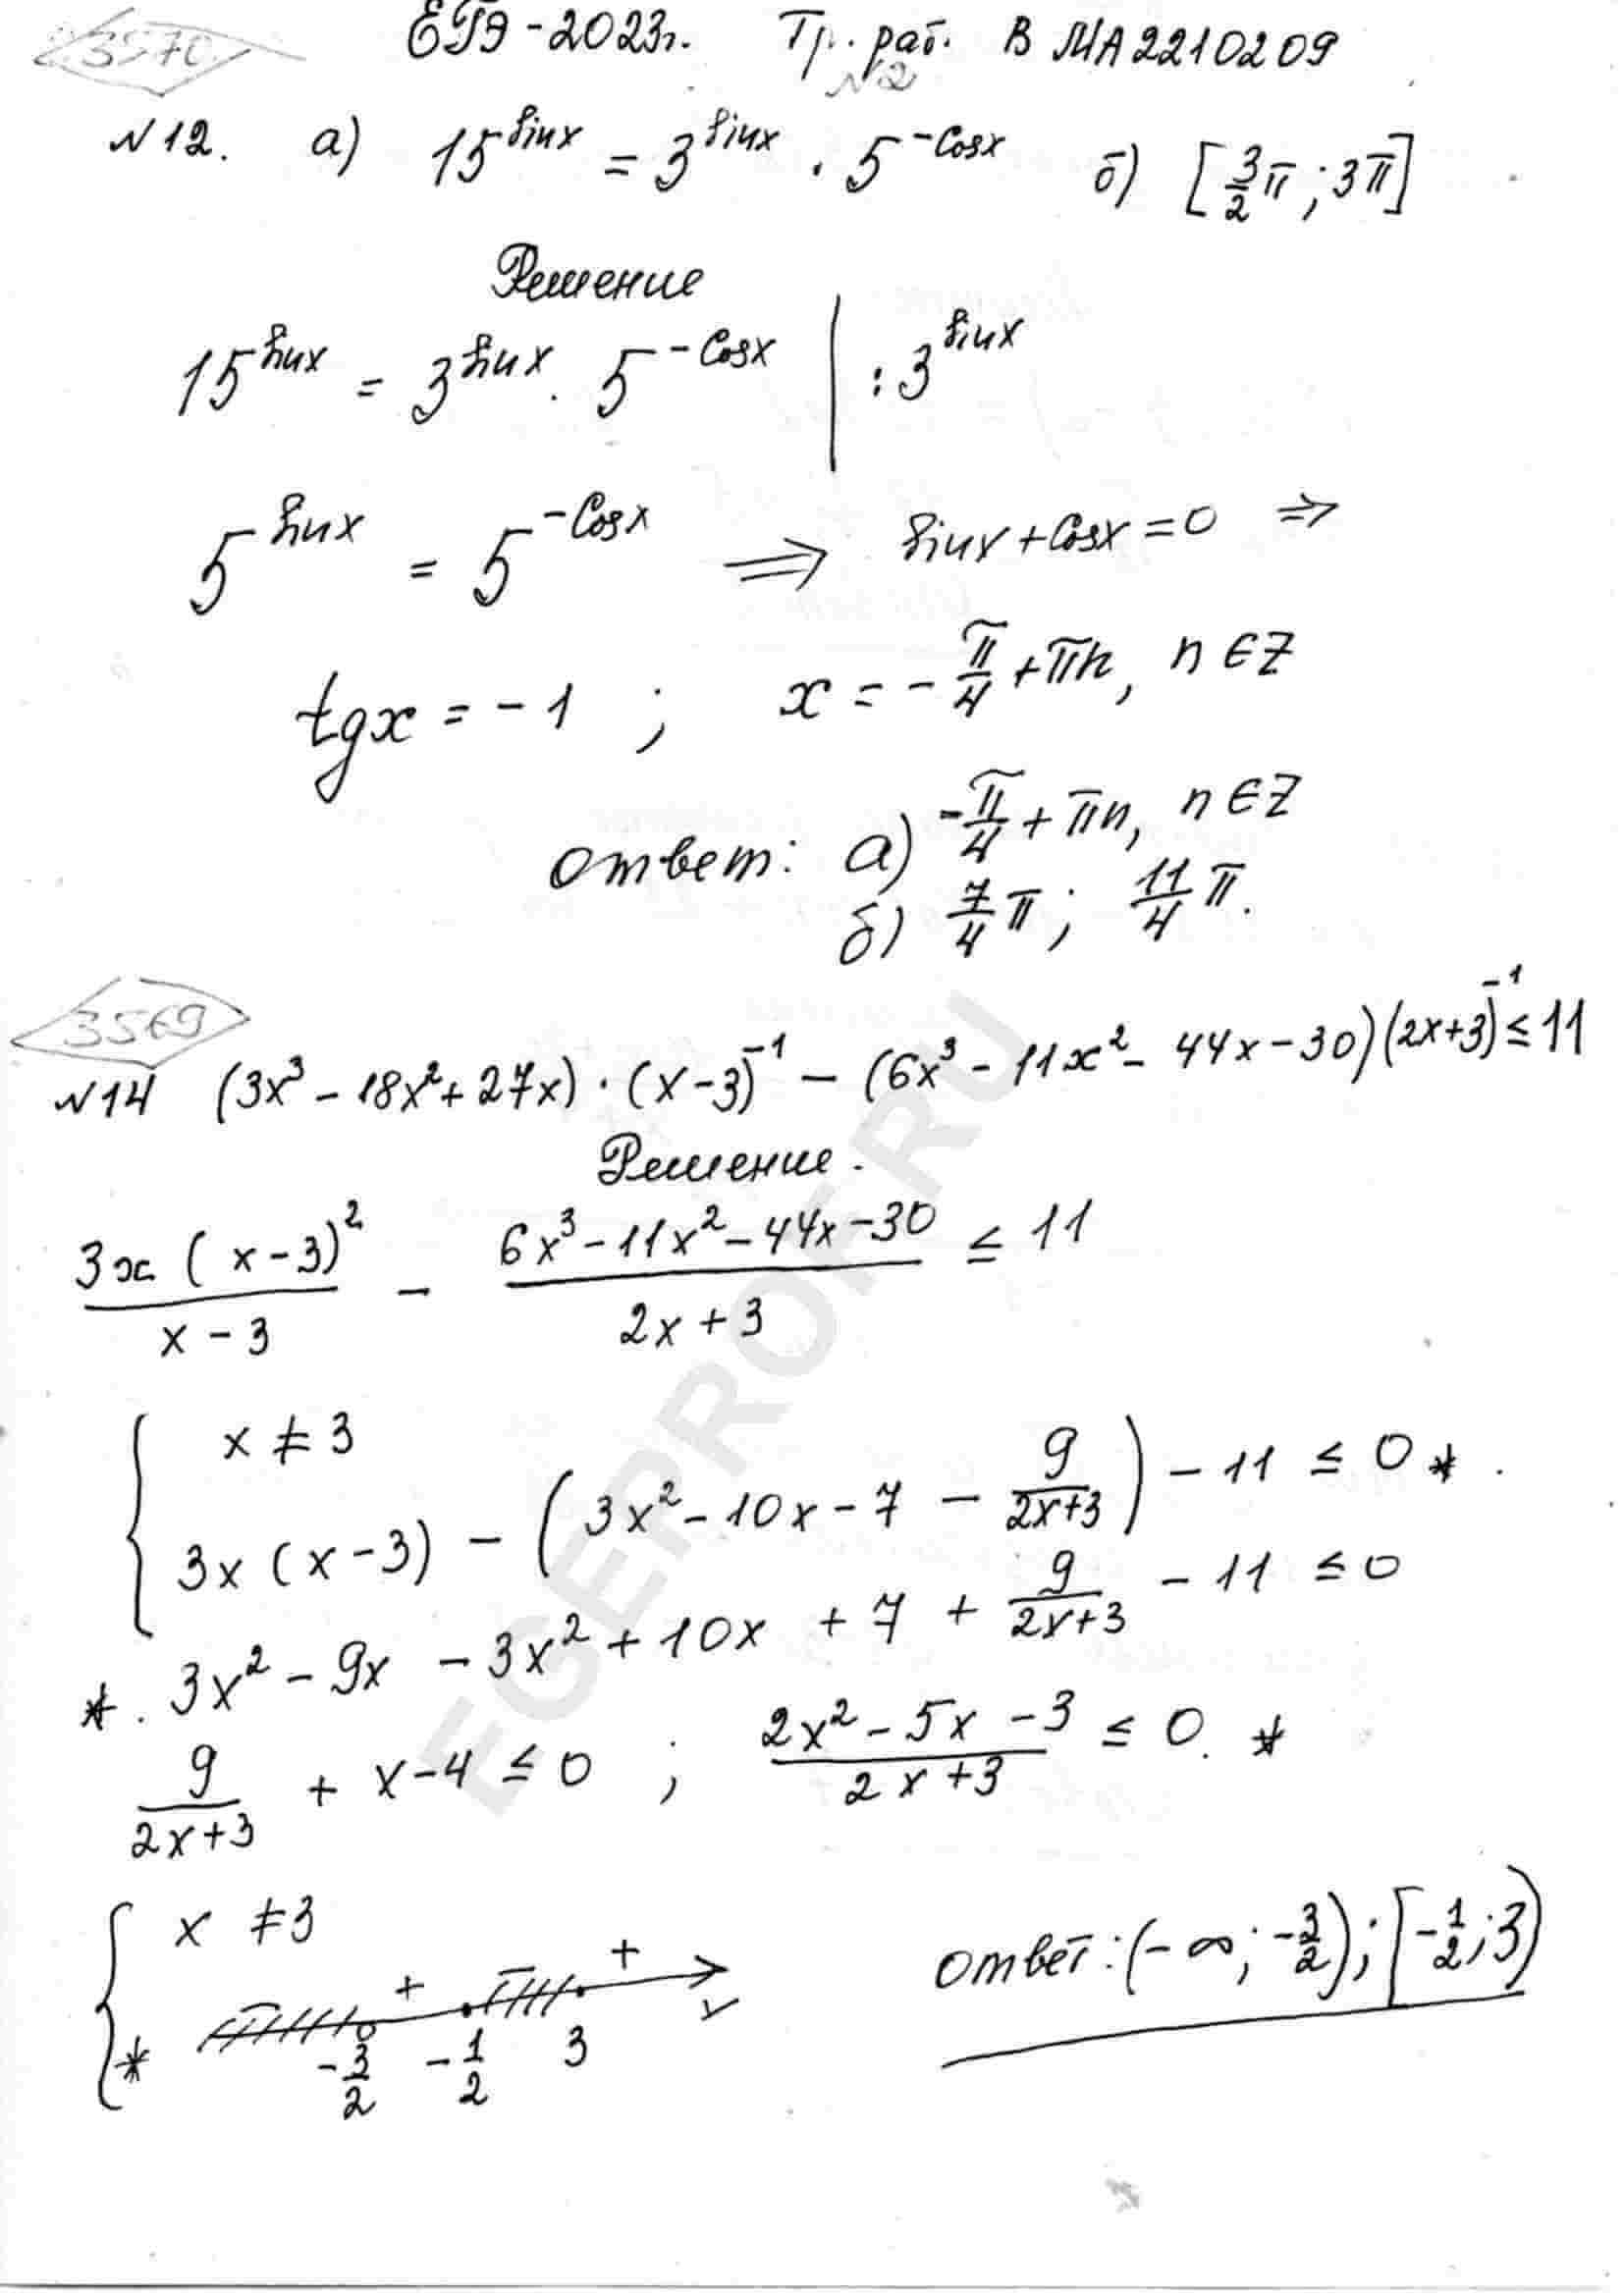 3570
ЕГЭ-2023г. Тр. раб. В МА2210209
№2
№12. а) 15^sinx = 3^sinx · 5^-Cosx б) [3/2 π; 3π]
Решение
15^sinx = 3^sinx · 5^-Cosx | : 3^sinx
5^sinx = 5^-Cosx ⟹ sinx + Cosx = 0 ⇒
tgx = -1 ; x = -π/4 + πn, n ∈ Z
ответ: а) -π/4 + πn, n ∈ Z
б) 7/4 π; 11/4 π.
3569
№14 (3x³ - 18x² + 27x) · (x-3)^-1 - (6x³ - 11x² - 44x - 30)(2x+3)^-1 ≤ 11
Решение.
3x(x-3)²/(x-3) - (6x³ - 11x² - 44x - 30)/(2x+3) ≤ 11
{ x ≠ 3
3x(x-3) - (3x² - 10x - 7 - 9/(2x+3)) - 11 ≤ 0 *.
*. 3x² - 9x - 3x² + 10x + 7 + 9/(2x+3) - 11 ≤ 0
9/(2x+3) + x - 4 ≤ 0 ; (2x² - 5x - 3)/(2x+3) ≤ 0. *
{ x ≠ 3
* - + - + x
-3/2 -1/2 3
ответ: (-∞; -3/2); [-1/2; 3)
EGEPROF.RU